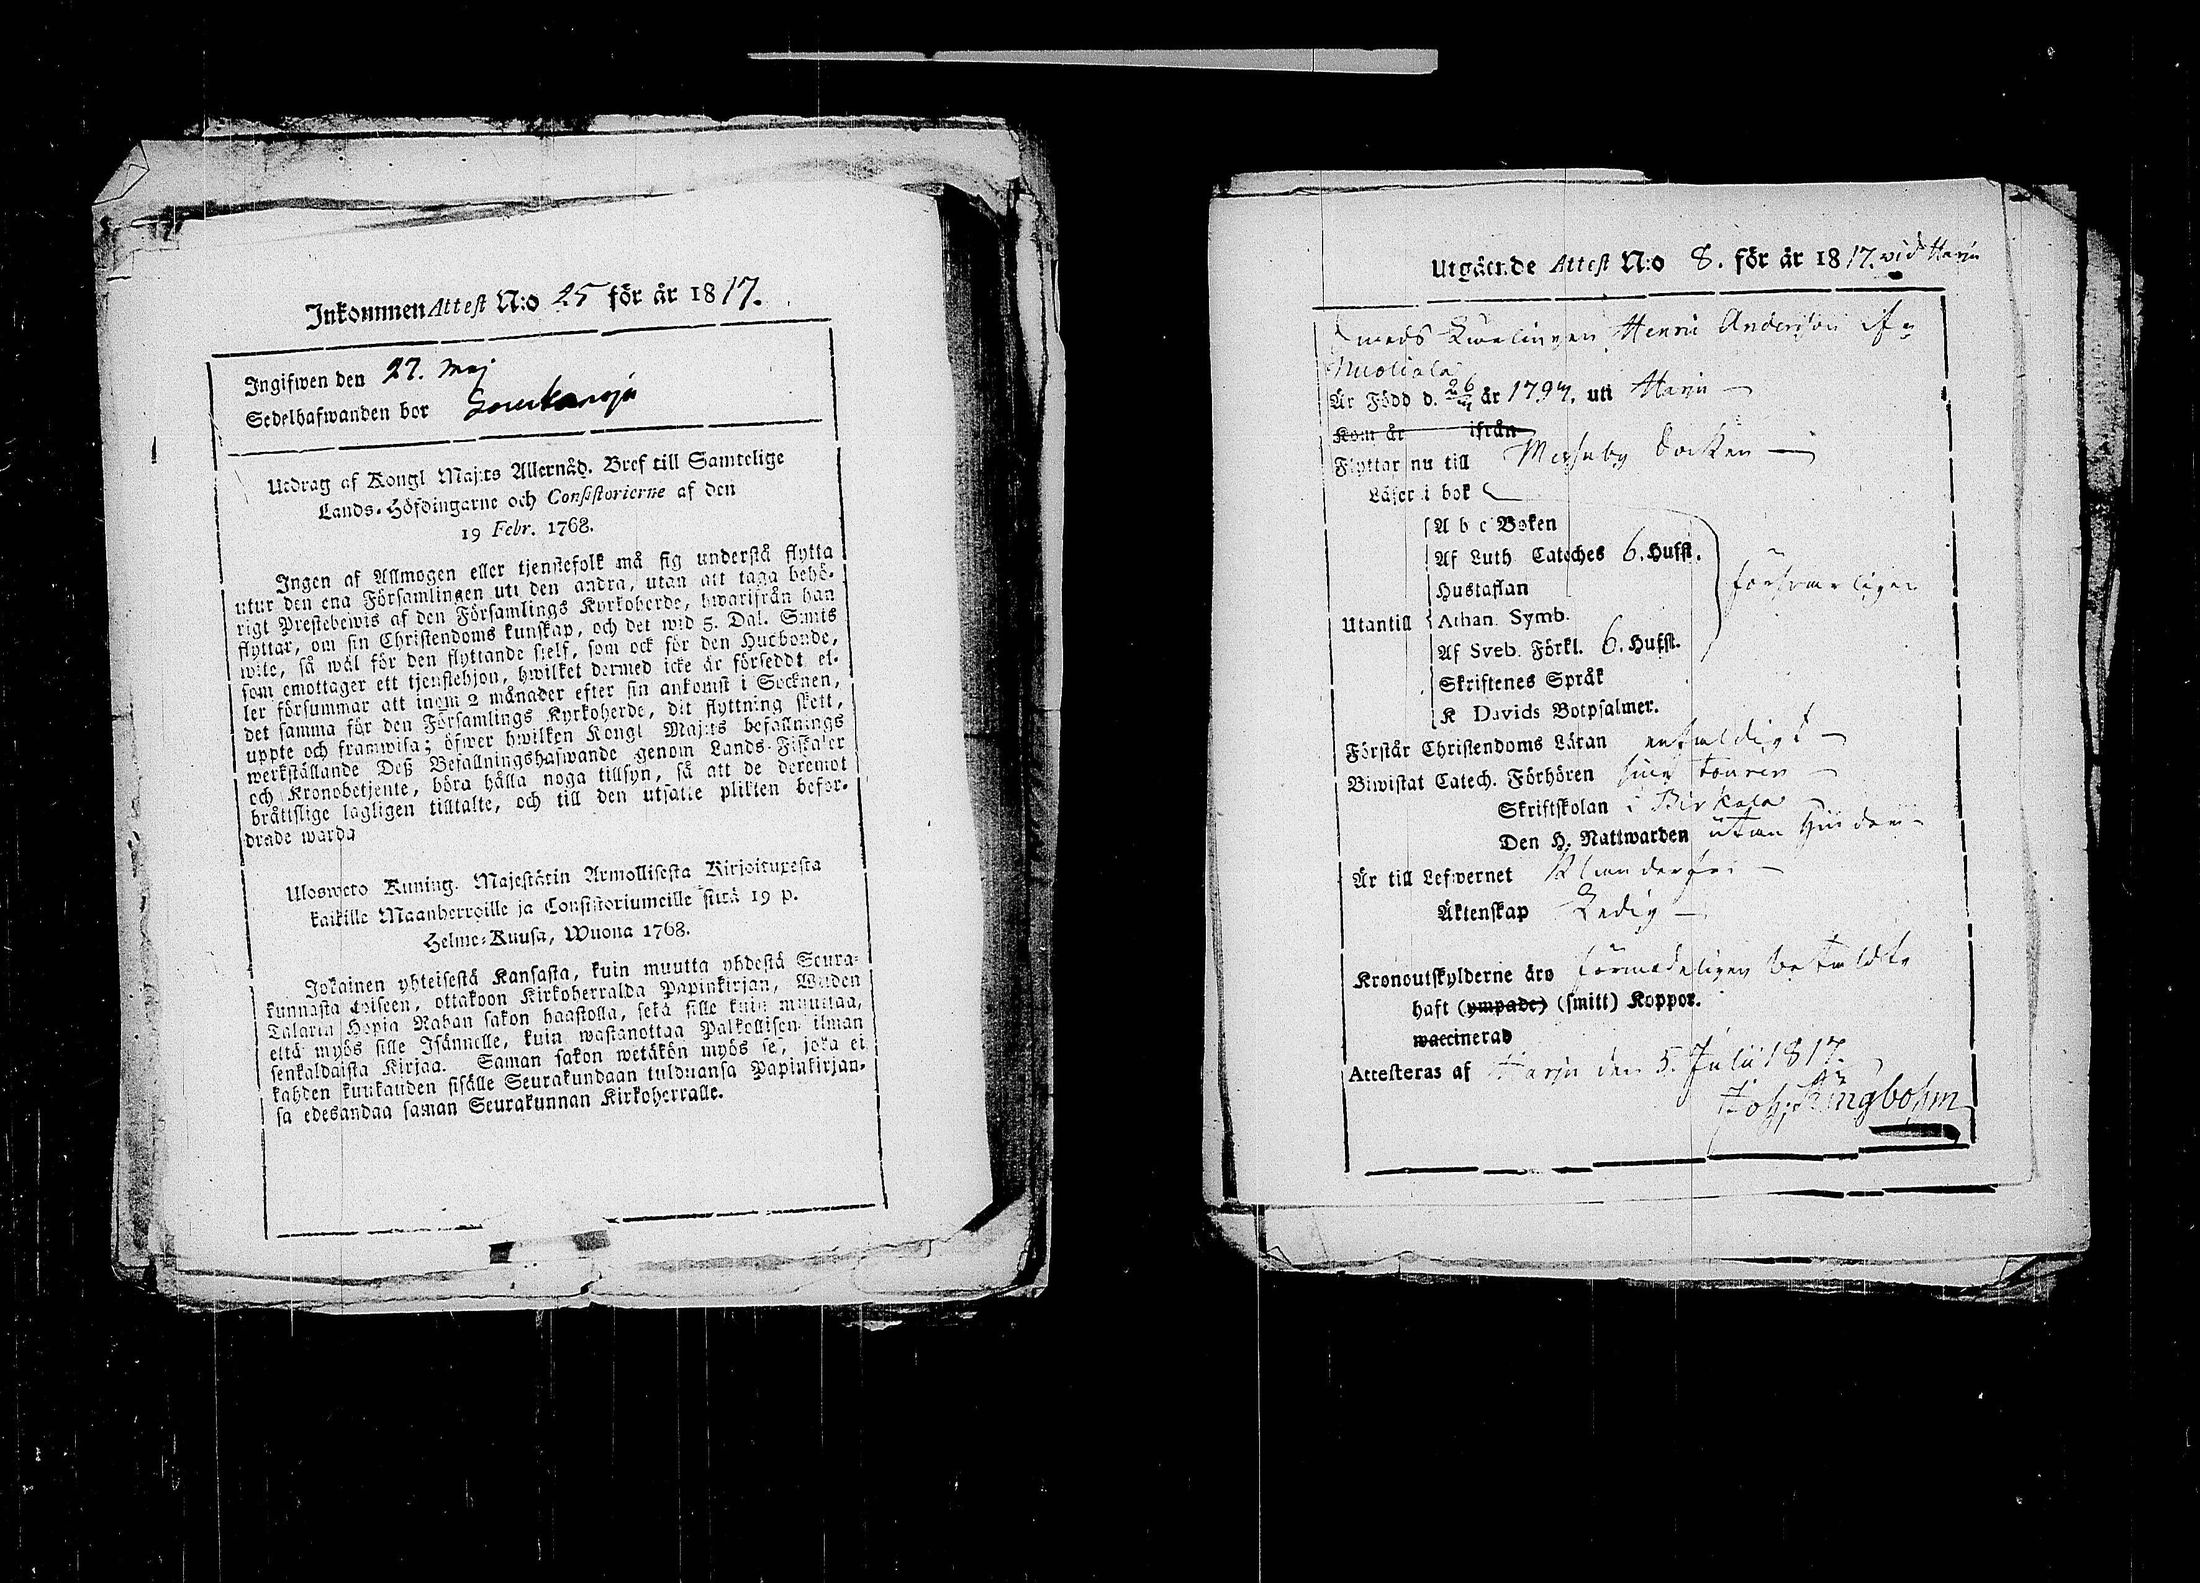 Inkommen Attest N:o 25 för år 1817.
Ingifwen den 27. Maj
Sedelhafwanden bor
Utdrag af Kongl Maj:ts Allernåd. Bref till Samtelige
Lands-Höfdingarne och Consistorierne af den
19 Febr. 1768.
Ingen af Allmogen eller tjenstefolk må sig understå flytta
utur den ena Församlingen uti den andra, utan att taga behö-
rigt Prestebewis af den Församlings Kyrkoherde, hwarifrån han
flyttar, om sin Christendoms kunskap, och det wid 5. Dal. S:mts
wite, så wäl för den flyttande sielf, som ock för den Husbonde,
som emottager ett tjenstehjon, hwilket dermed icke är försedt el-
ler försummar att inom 2 månader efter sin ankomst i Socknen,
det samma för den Församlings Kyrkoherde, dit flyttning skett,
uppte och framwisa; öfwer hwilken Kongl Maj:ts befallnings
werkställande Deß Befallningshafwande genom Lands-Fiskaler
och Kronobetjente, böra hålla noga tillsyn, så att de deremot
bråttslige lagligen tilltalte, och till den utsatte plikten befor-
drade warda
Ulosweto Kuning. Majestätin Armollisesta Kirjoituxesta
kaikille Maanherroille ja Consistoriumeille siitä 19 p.
Helme-Kuusa, Wuona 1768.
Jokainen yhteisestä Kansasta, kuin muutta yhdestä Seura-
kunnasta toiseen, ottakoon Kirkoherralda Papinkirjan, Wiiden
Talarin Hopia Rahan sakon haastolla, sekä sille kuin muuttaa,
että myös sille Isännelle, kuin wastanottaa Palkollisen ilman
senkaldaista Kirjaa. Saman sakon wetäkön myös se, joka ei
kahden kuukauden sisälle Seurakundaan tulduansa Papinkirjan-
sa edesandaa saman Seurakunnan Kirkoherralle.
Utgående Attest N:o 8. för år 1817. vid Harju
Henric Andersson if:n
Är Född d. 26 år 1794. uti Harju
Kom år ifrån
Flyttar nu till Socken
Läser i bok
A b c Boken
Af Luth Cateches 6. Hufst.
Hustaflan
Utantill Athan. Symb.
Af Sveb. Förkl. 6. Hufst.
Skriftenes Språk
K Davids Botpsalmer.
försvarligen
Förstår Christendoms Läran enfaldigt
Biwistat Catech. Förhören sine
Skriftskolan i Birkala
Den H. Nattwarden utan hinder
Är till Lefwernet klanderfri
Äktenskap Ledig
Kronoutskylderne äro förmodeligen betaldte
haft (ympade) (smitt) Koppor.
waccinerad
Attesteras af Harju den 5. Julii 1817.
Joh: Ringbohm